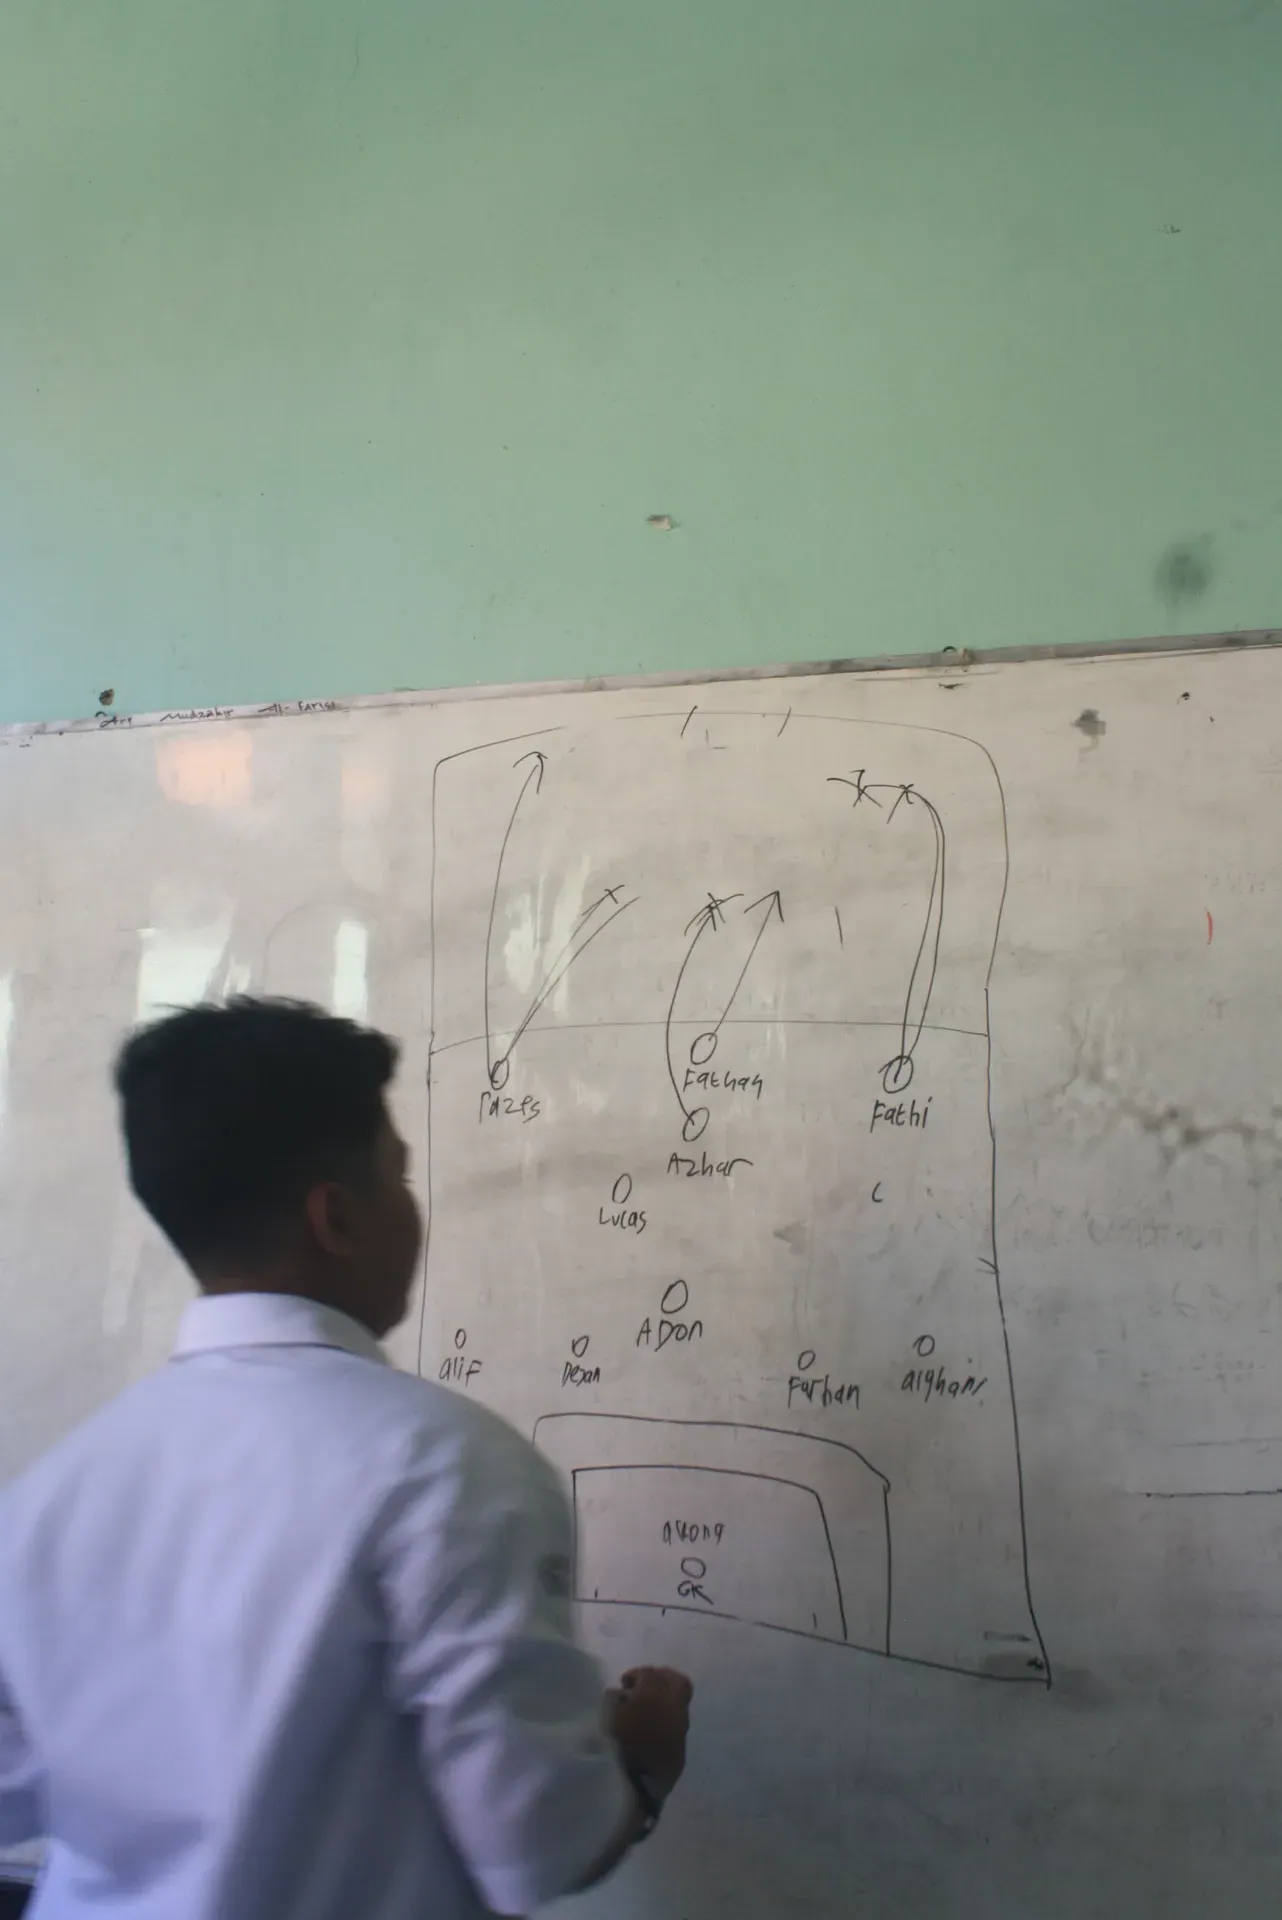 Mudzakir Al-Farisi
Fathan
Fathi
Azhar
Lucas
ADon
alif
Dejan
Farhan
alghani
GK